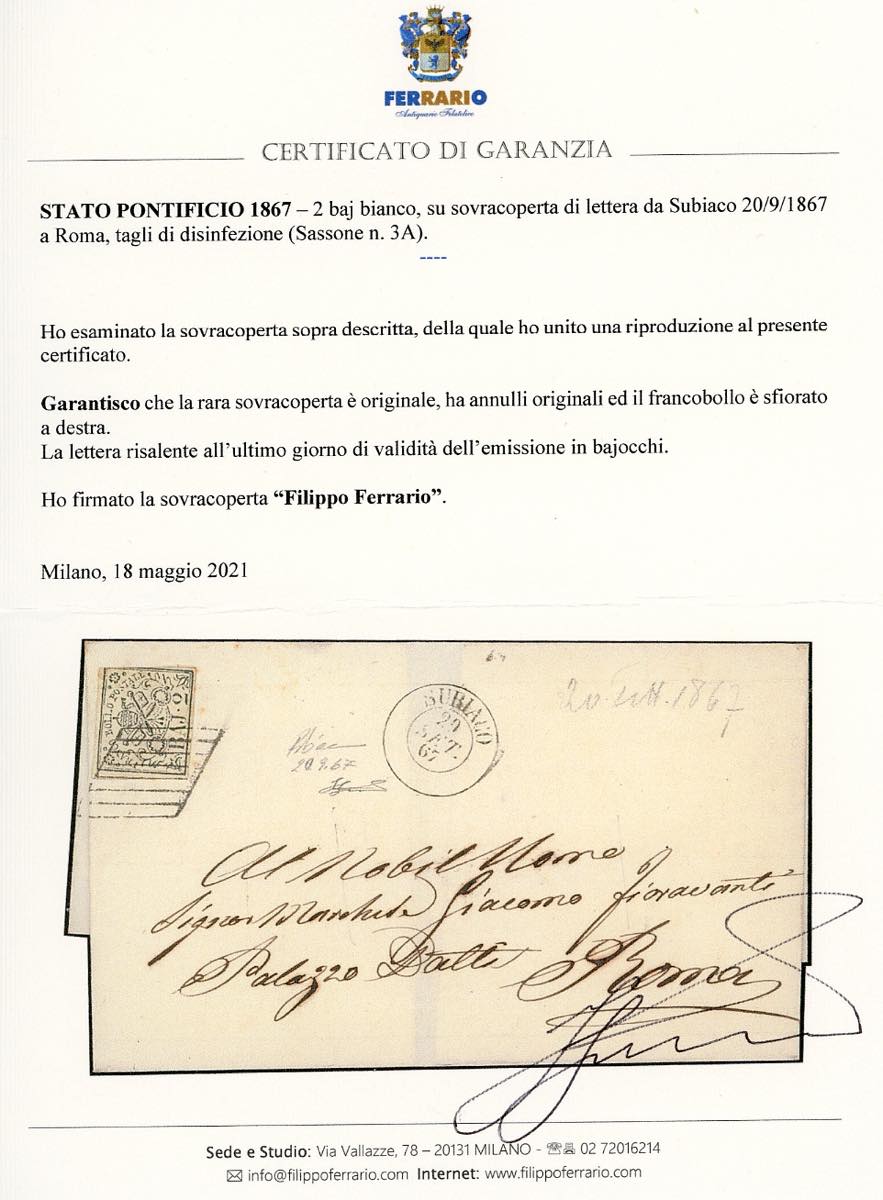 FERRARIO
Antiquario Filatelico
CERTIFICATO DI GARANZIA
STATO PONTIFICIO 1867 – 2 baj bianco, su sovracoperta di lettera da Subiaco 20/9/1867
a Roma, tagli di disinfezione (Sassone n. 3A).
----
Ho esaminato la sovracoperta sopra descritta, della quale ho unito una riproduzione al presente
certificato.
Garantisco che la rara sovracoperta è originale, ha annulli originali ed il francobollo è sfiorato
a destra.
La lettera risalente all’ultimo giorno di validità dell’emissione in bajocchi.
Ho firmato la sovracoperta “Filippo Ferrario”.
Milano, 18 maggio 2021
BOLLO POSTALE
BAJ 2
SUBIACO
20
SET.
67
20 sett. 1867
20.9.67
Al Nobil Uomo
Signor Marchese Giacomo Fioravanti
Palazzo Roma
Sede e Studio: Via Vallazze, 78 – 20131 MILANO - ☏ 02 72016214
✉ info@filippoferrario.com Internet: www.filippoferrario.com